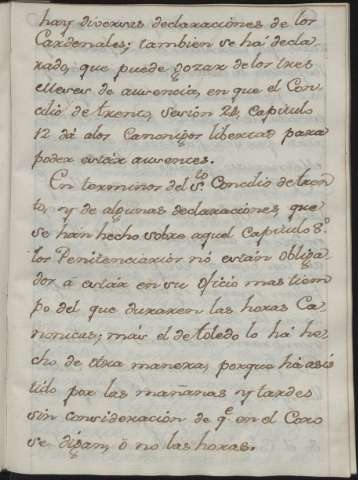 hay diversas declaraciónes de los
Cardenáles; tambien se há decla-
rado, que puede gozar de los tres
meses de ausencia, en que el Con-
cilio de trento, sesión 24, capitulo
12 dá alos Canonigos libertad para
poder estár ausentes.
En terminos del S.to Concilio de tren
to, y de algunas declaraciónes, que
se han hecho sobre aquel Capitulo 8.º
los Penitenciarios nó están obliga-
dos á estár en su oficio mas tiem
po del que duraren las horas Ca-
nonicas; más el de toledo lo há he-
cho de otra manera, porque há asis
tido por las mañanas y tardes
sin consideración de q.e en el Coro
se digan, ó no las horas.